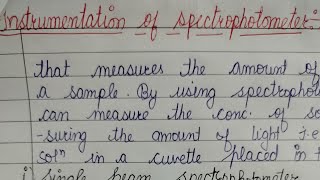 Instrumentation of spectrophotometer:-
that measures the amount of
a sample. By using spectrophot
can measure the conc. of so
-suring the amount of light i.e
solⁿ in a cuvette placed in t
i) single beam spectrophotometer